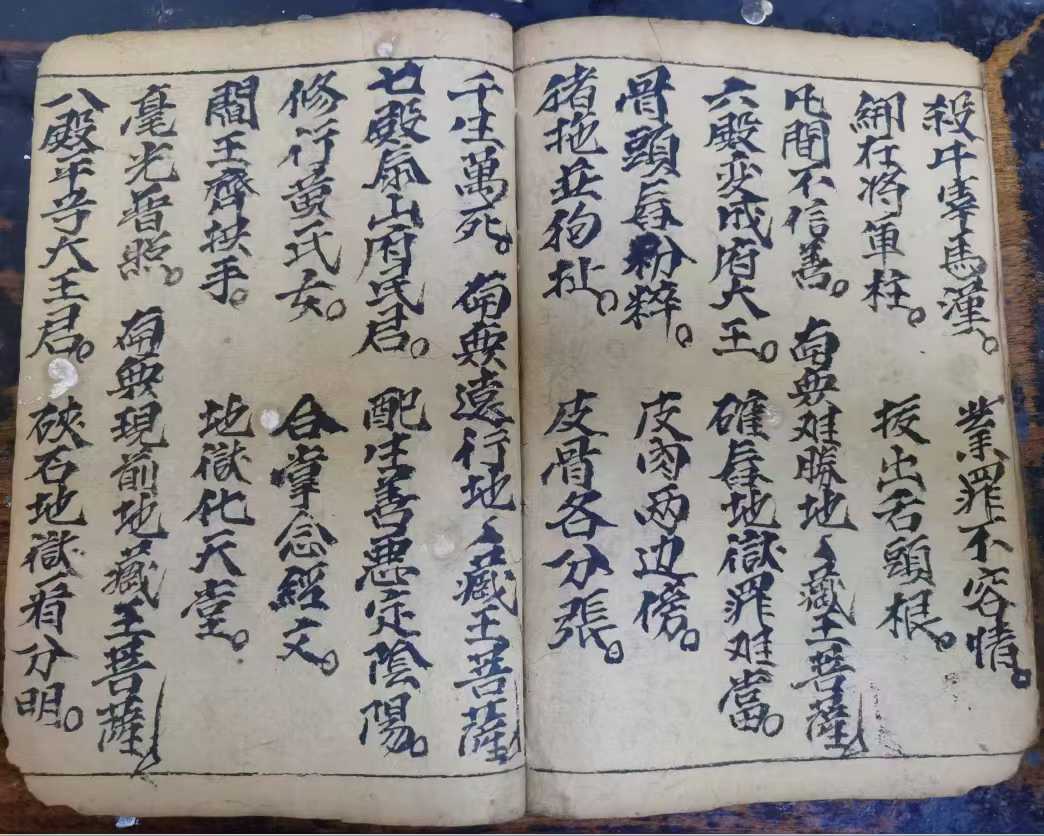 殺牛宰馬漢。業罪不容情。
綁在将軍柱。拔出舌頭根。
凡間不信善。南無难勝地〻藏王菩薩
六殿变成府大王。碓舂地獄罪难當。
骨頭舂粉粹。皮肉两边傍。
猪拖並狗扯。皮骨各分張。
千生萬死。南無遠行地〻藏王菩薩
七殿泰山府民君。配生善悪定陰陽。
修行黄氏女。合掌念經文。
閻王齊拱手。地獄化天堂。
毫光普照。南無現前地藏王菩薩
八殿平等大王君。硤石地獄看分明。